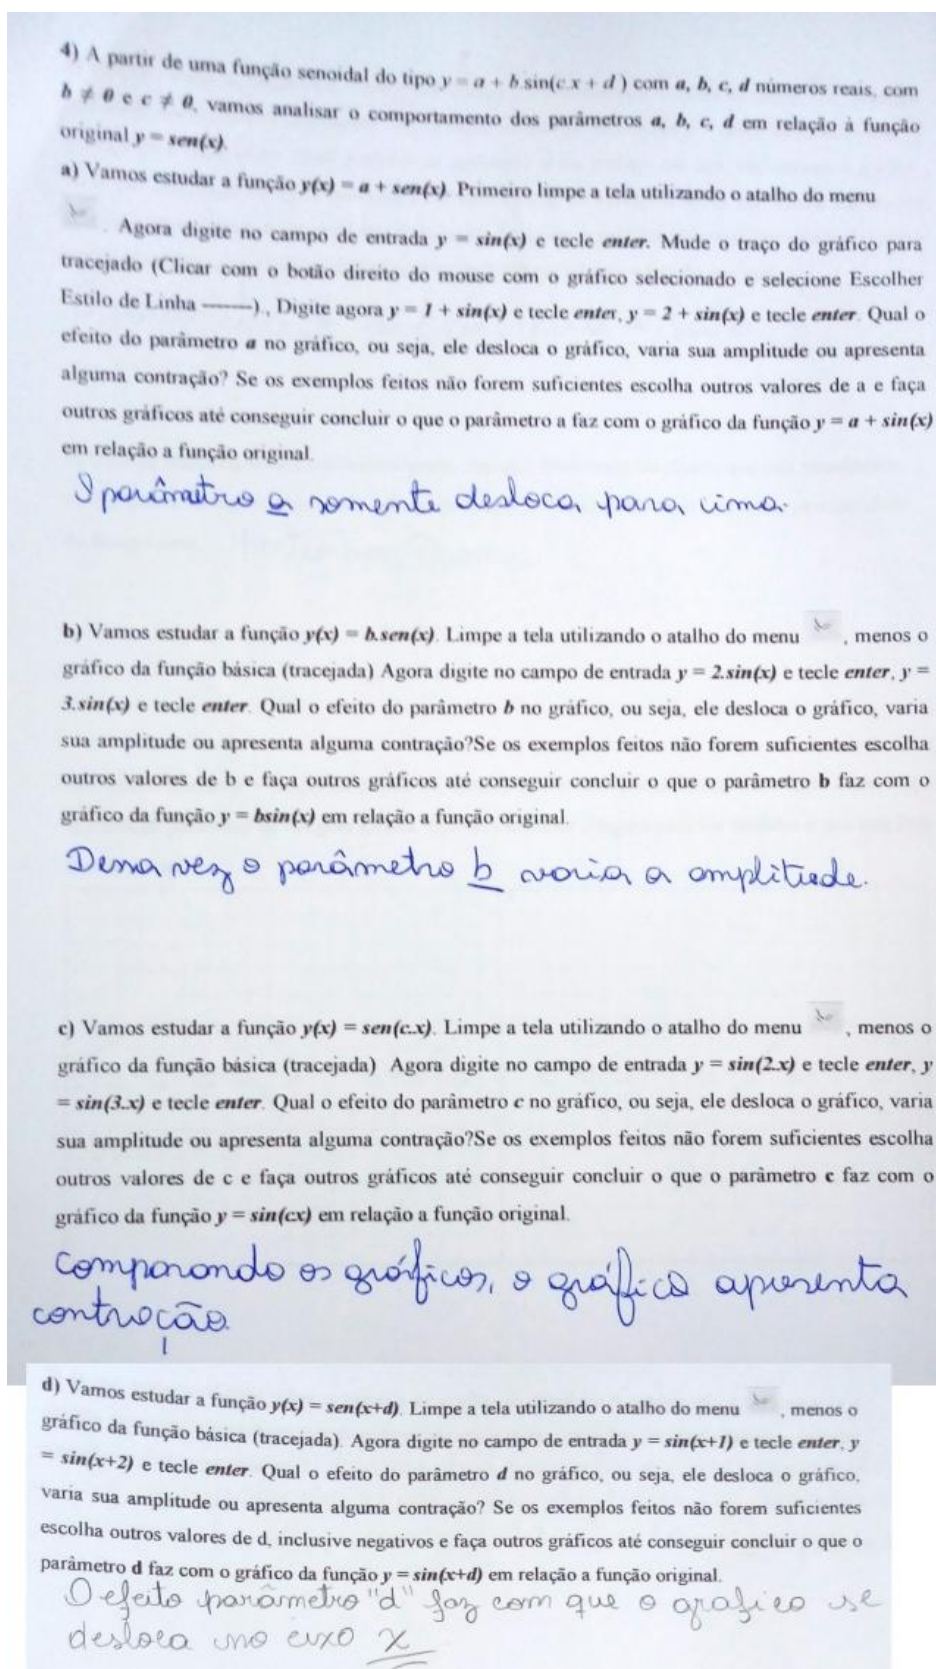 4) A partir de uma função senoidal do tipo y = a + b.sin(c.x + d ) com a, b, c, d números reais, com
b ≠ 0 e c ≠ 0, vamos analisar o comportamento dos parâmetros a, b, c, d em relação à função
original y = sen(x).
a) Vamos estudar a função y(x) = a + sen(x). Primeiro limpe a tela utilizando o atalho do menu
. Agora digite no campo de entrada y = sin(x) e tecle enter. Mude o traço do gráfico para
tracejado (Clicar com o botão direito do mouse com o gráfico selecionado e selecione Escolher
Estilo de Linha -------)., Digite agora y = 1 + sin(x) e tecle enter, y = 2 + sin(x) e tecle enter. Qual o
efeito do parâmetro a no gráfico, ou seja, ele desloca o gráfico, varia sua amplitude ou apresenta
alguma contração? Se os exemplos feitos não forem suficientes escolha outros valores de a e faça
outros gráficos até conseguir concluir o que o parâmetro a faz com o gráfico da função y = a + sin(x)
em relação a função original.
O parâmetro a somente desloca para cima.
b) Vamos estudar a função y(x) = b.sen(x). Limpe a tela utilizando o atalho do menu , menos o
gráfico da função básica (tracejada) Agora digite no campo de entrada y = 2.sin(x) e tecle enter, y =
3.sin(x) e tecle enter. Qual o efeito do parâmetro b no gráfico, ou seja, ele desloca o gráfico, varia
sua amplitude ou apresenta alguma contração?Se os exemplos feitos não forem suficientes escolha
outros valores de b e faça outros gráficos até conseguir concluir o que o parâmetro b faz com o
gráfico da função y = bsin(x) em relação a função original.
Dessa vez o parâmetro b varia a amplitude.
c) Vamos estudar a função y(x) = sen(c.x). Limpe a tela utilizando o atalho do menu , menos o
gráfico da função básica (tracejada) Agora digite no campo de entrada y = sin(2.x) e tecle enter, y
= sin(3.x) e tecle enter. Qual o efeito do parâmetro c no gráfico, ou seja, ele desloca o gráfico, varia
sua amplitude ou apresenta alguma contração?Se os exemplos feitos não forem suficientes escolha
outros valores de c e faça outros gráficos até conseguir concluir o que o parâmetro c faz com o
gráfico da função y = sin(cx) em relação a função original.
Comparando os gráficos, o gráfico apresenta
contração
d) Vamos estudar a função y(x) = sen(x+d). Limpe a tela utilizando o atalho do menu , menos o
gráfico da função básica (tracejada). Agora digite no campo de entrada y = sin(x+1) e tecle enter, y
= sin(x+2) e tecle enter. Qual o efeito do parâmetro d no gráfico, ou seja, ele desloca o gráfico,
varia sua amplitude ou apresenta alguma contração? Se os exemplos feitos não forem suficientes
escolha outros valores de d, inclusive negativos e faça outros gráficos até conseguir concluir o que o
parâmetro d faz com o gráfico da função y = sin(x+d) em relação a função original.
O efeito parâmetro "d" faz com que o grafico se
desloca no eixo x